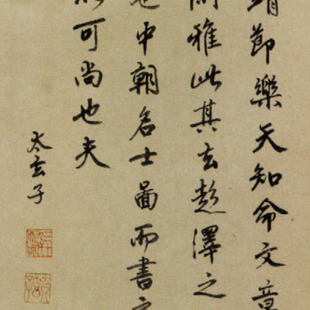 靖節樂天知命文章
而雅此其去彭澤之
也中朝名士圖而書之
可尚也夫
太玄子